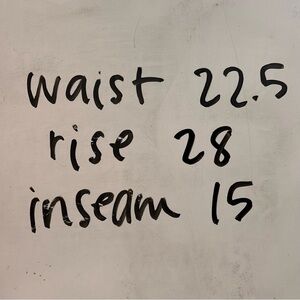 waist 22.5
rise 28
inseam 15